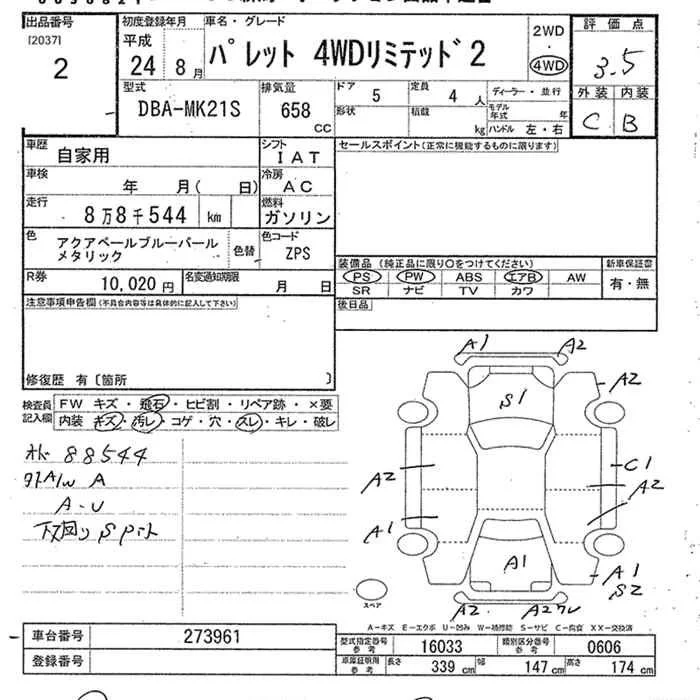 出品番号
[2037]
2
初度登録年月
平成
24 8月
車名・グレード
パレット 4WDリミテッド2
2WD
・
4WD
評価点
3.5
外装 内装
C B
型式
DBA-MK21S
排気量
658
CC
ドア 5
定員 4 人
形状
積載
kg
ディーラー・並行
モデル年式 年
ハンドル 左・右
車歴
自家用
シフト
IAT
車検
年 月( 日)
冷房
AC
走行
8万8千544 km
燃料
ガソリン
色
アクアペールブルーパール
メタリック
色替
色コード
ZPS
R券
10,020円
名変通知期限
月 日
セールスポイント(正常に機能するものに限ります)
装備品(純正品に限り○をつけてください)
新車保証書
PS PW ABS エアB AW
有・無
SR ナビ TV カワ
後日品
注意事項申告欄(不具合内容等は具体的に記入して下さい)
修復歴 有〔箇所 〕
検査員
記入欄
FW キズ・飛石・ヒビ割・リペア跡・×要
内装 キズ・汚レ・コゲ・穴・スレ・キレ・破レ
88544
A
A-U
下回り Sアト
A1 A2
S1
A2
A2
C1
A2
A1
A1
A1
S2
A2 A2ワレ
スペア
A-キズ E-エクボ U-凹み W-補修跡 S-サビ C-腐食 XX-交換済
車台番号
273961
登録番号
型式指定番号
参考
16033
類別区分番号
参考
0606
車庫証明用
参考
長さ 339 cm
幅 147 cm
高さ 174 cm